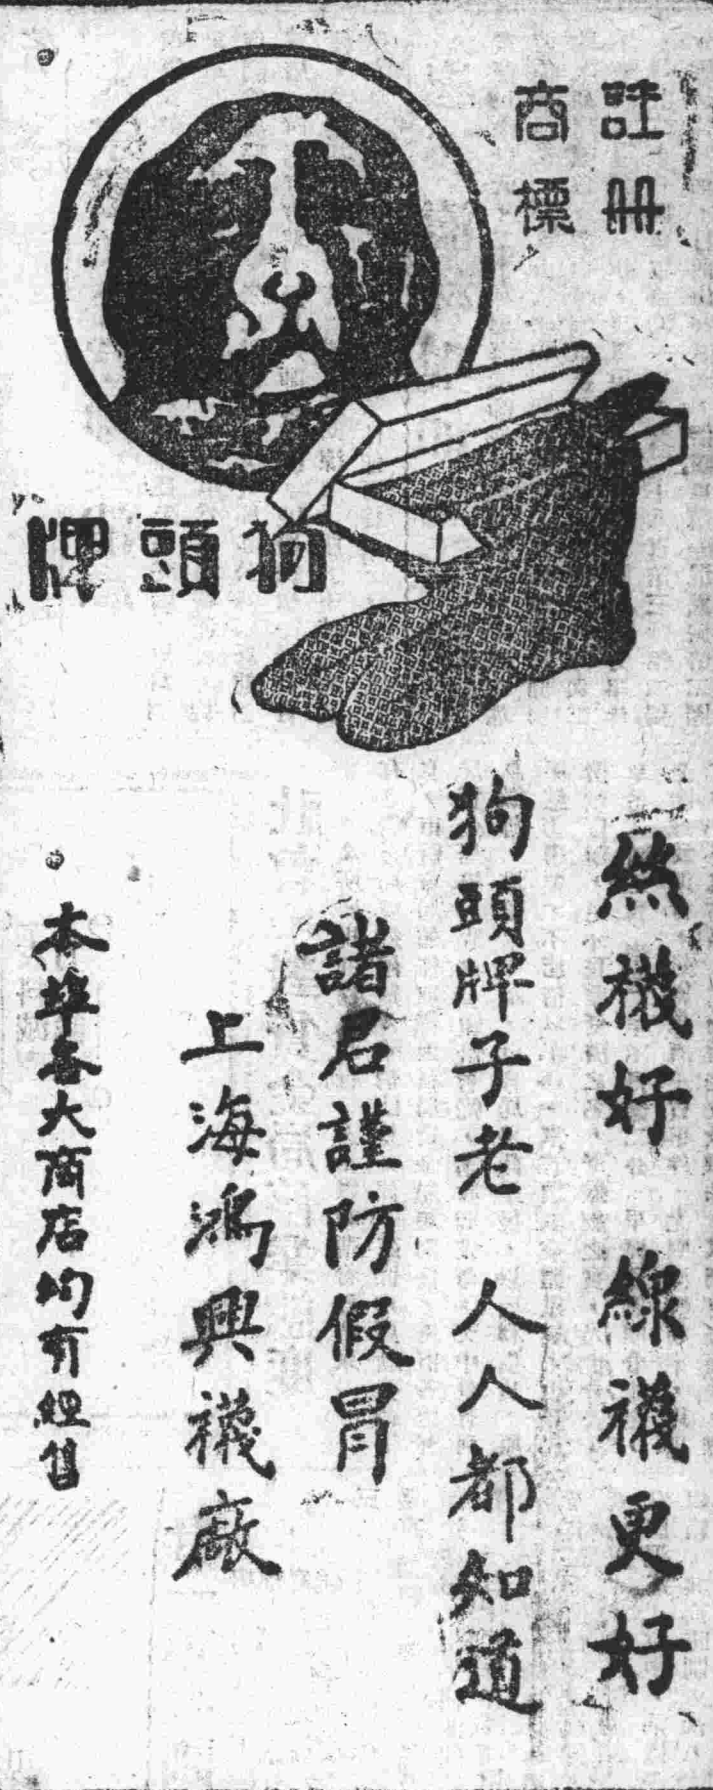 註冊
商標
狗頭牌
絲襪好 線襪更好
狗頭牌子老 人人都知道
諸君謹防假冒
上海鴻興襪廠
本埠各大商店均有經售